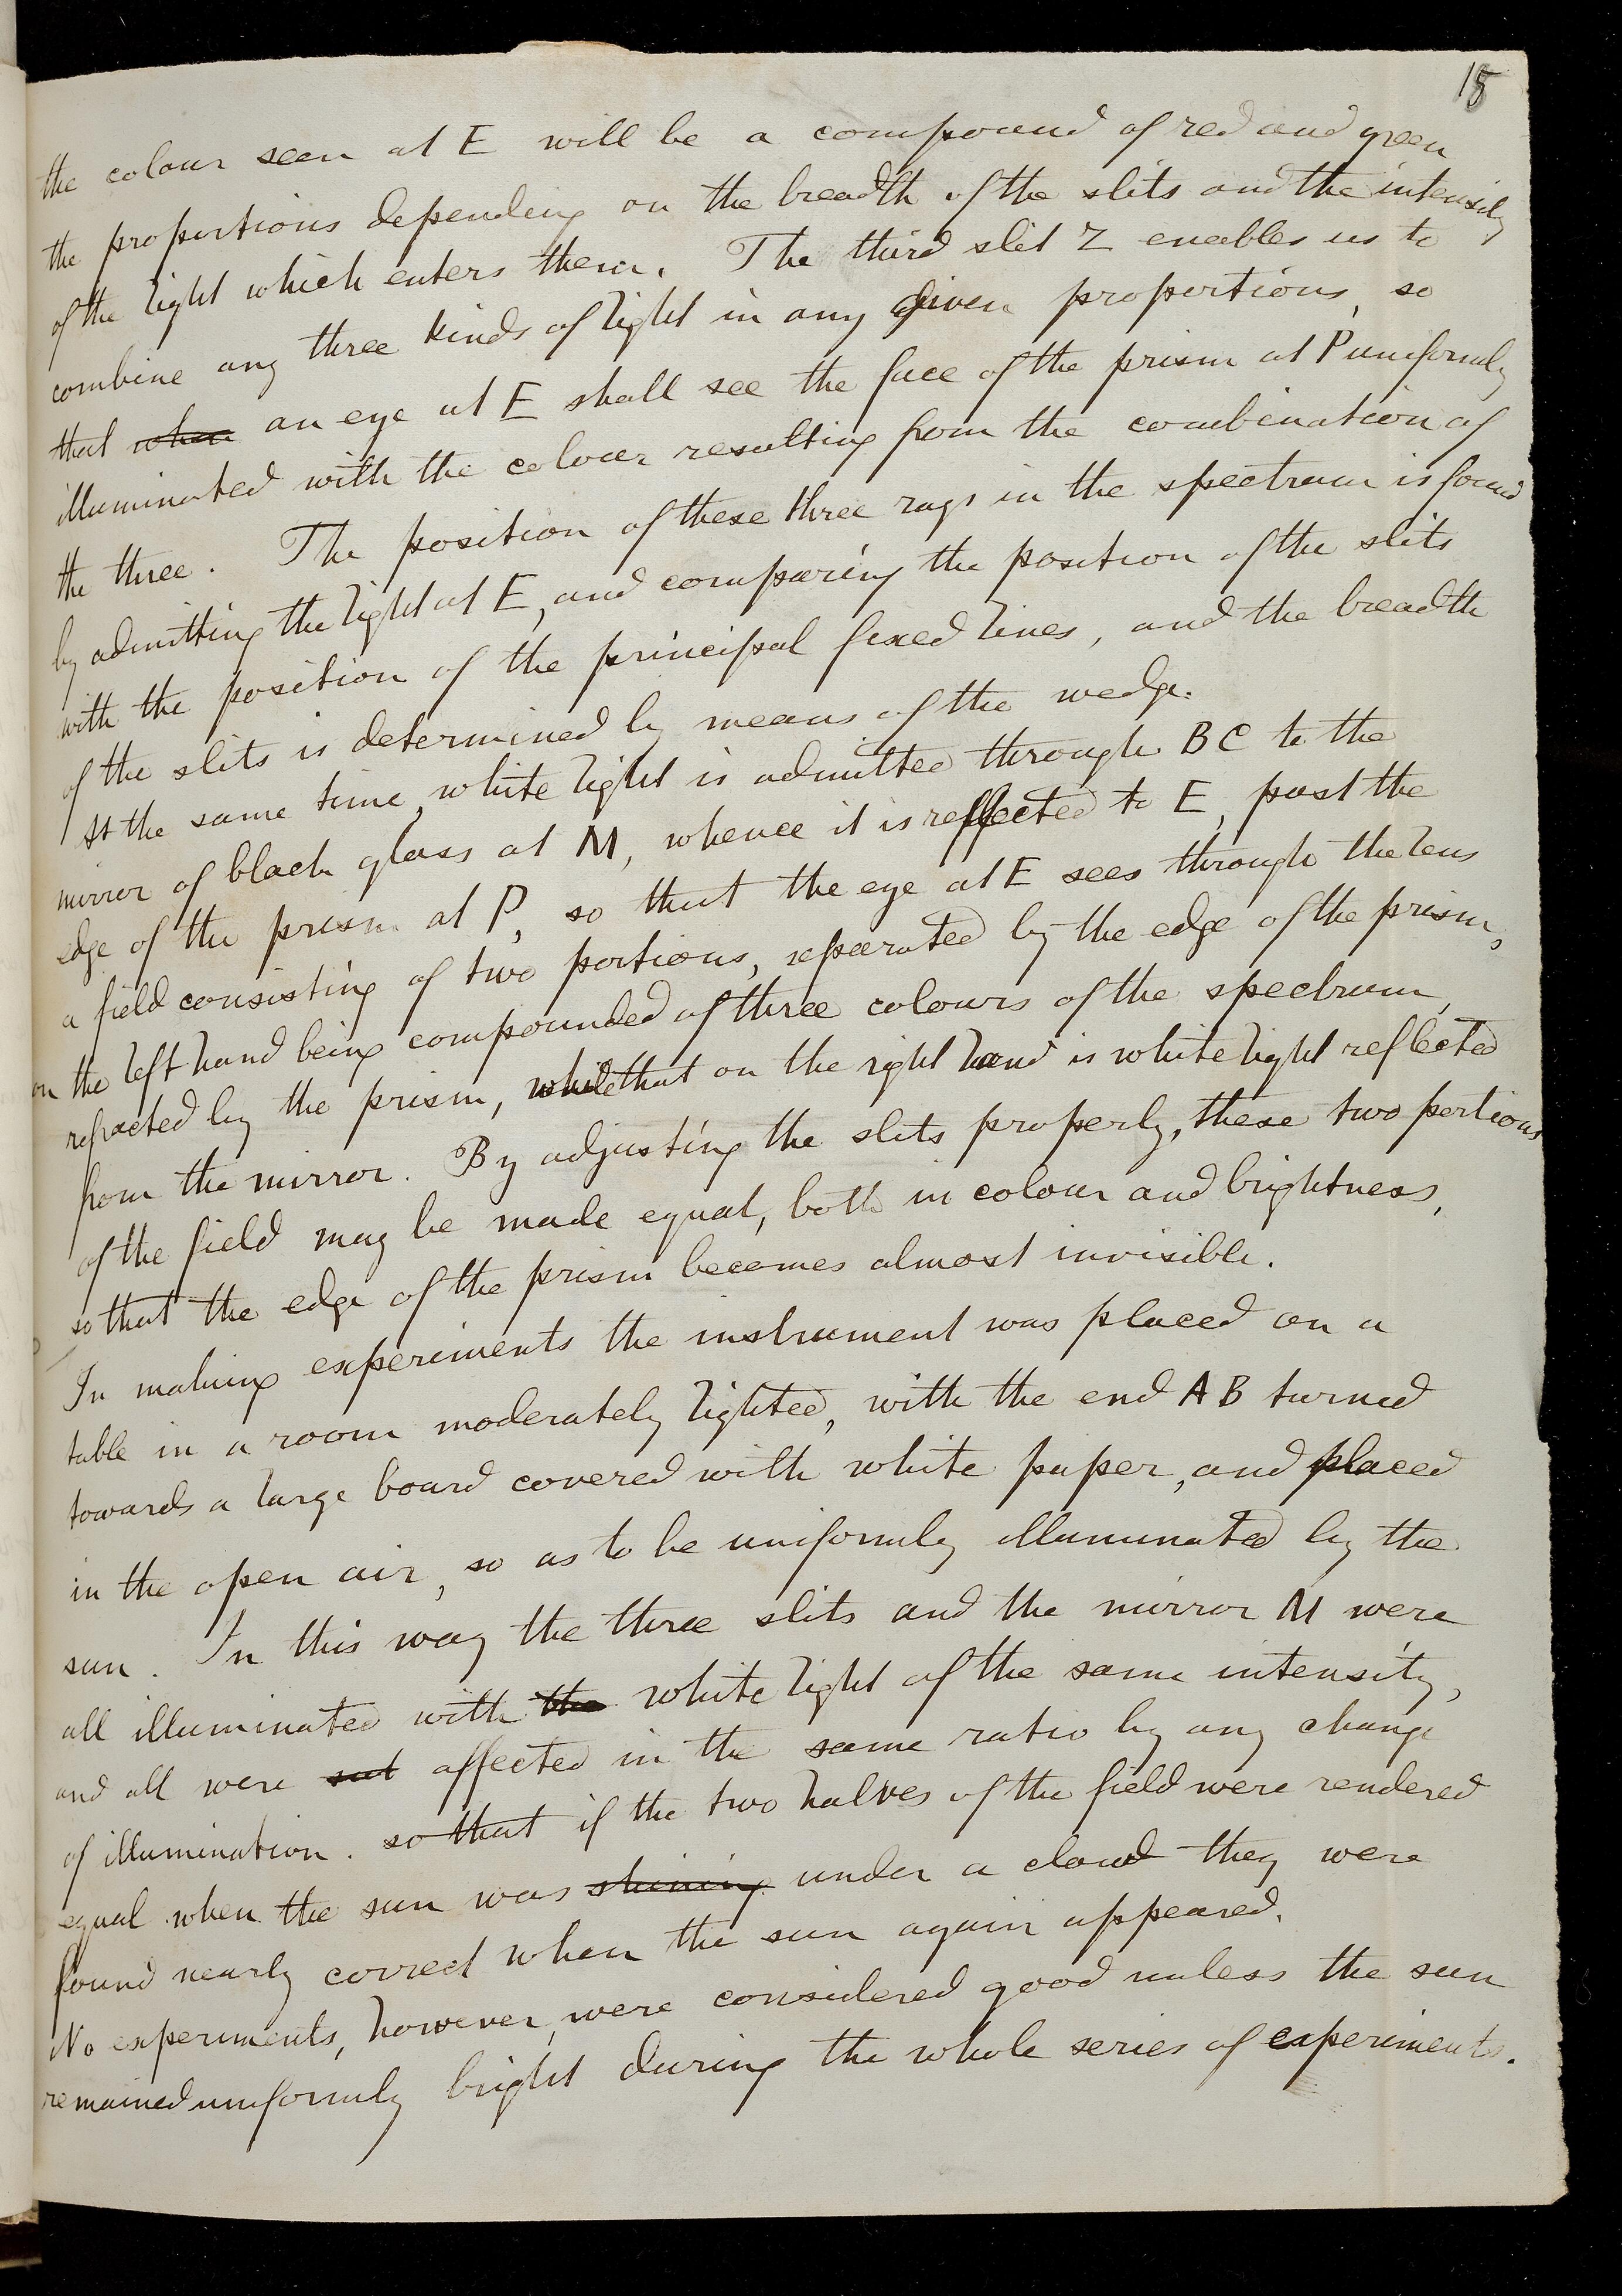 15
the colour seen at E will be a compound of red and green
the proportions depending on the breadth of the slits and the intensity
of the light which enters them. The third slit Z enables us to
combine any three kinds of light in any given proportions, so
that when an eye at E shall see the face of the prism at P uniformly
illuminated with the colour resulting from the combination of
the three. The position of these three rays in the spectrum is found
by admitting the light at E, and comparing the position of the slits
with the position of the principal fixed lines, and the breadth
of the slits is determined by means of the wedge.
At the same time, white light is admitted through BC to the
mirror of black glass at M, whence it is reflected to E, past the
edge of the prism at P, so that the eye at E sees through the lens
a field consisting of two portions, separated by the edge of the prism,
on the left hand being compounded of three colours of the spectrum,
refracted by the prism, while that on the right hand is white light reflected
from the mirror. By adjusting the slits properly, these two portions
of the field may be made equal, both in colour and brightness,
so that the edge of the prism becomes almost invisible.
In making experiments the instrument was placed on a
table in a room moderately lighted, with the end AB turned
towards a large board covered with white paper, and placed
in the open air, so as to be uniformly illuminated by the
sun. In this way the three slits and the mirror M were
all illuminated with the white light of the same intensity,
and all were affected in the same ratio by any change
of illumination. so that if the two halves of the field were rendered
equal when the sun was shining under a cloud they were
found nearly correct when the sun again appeared.
No experiments, however, were considered good unless the sun
remained uniformly bright during the whole series of experiments.